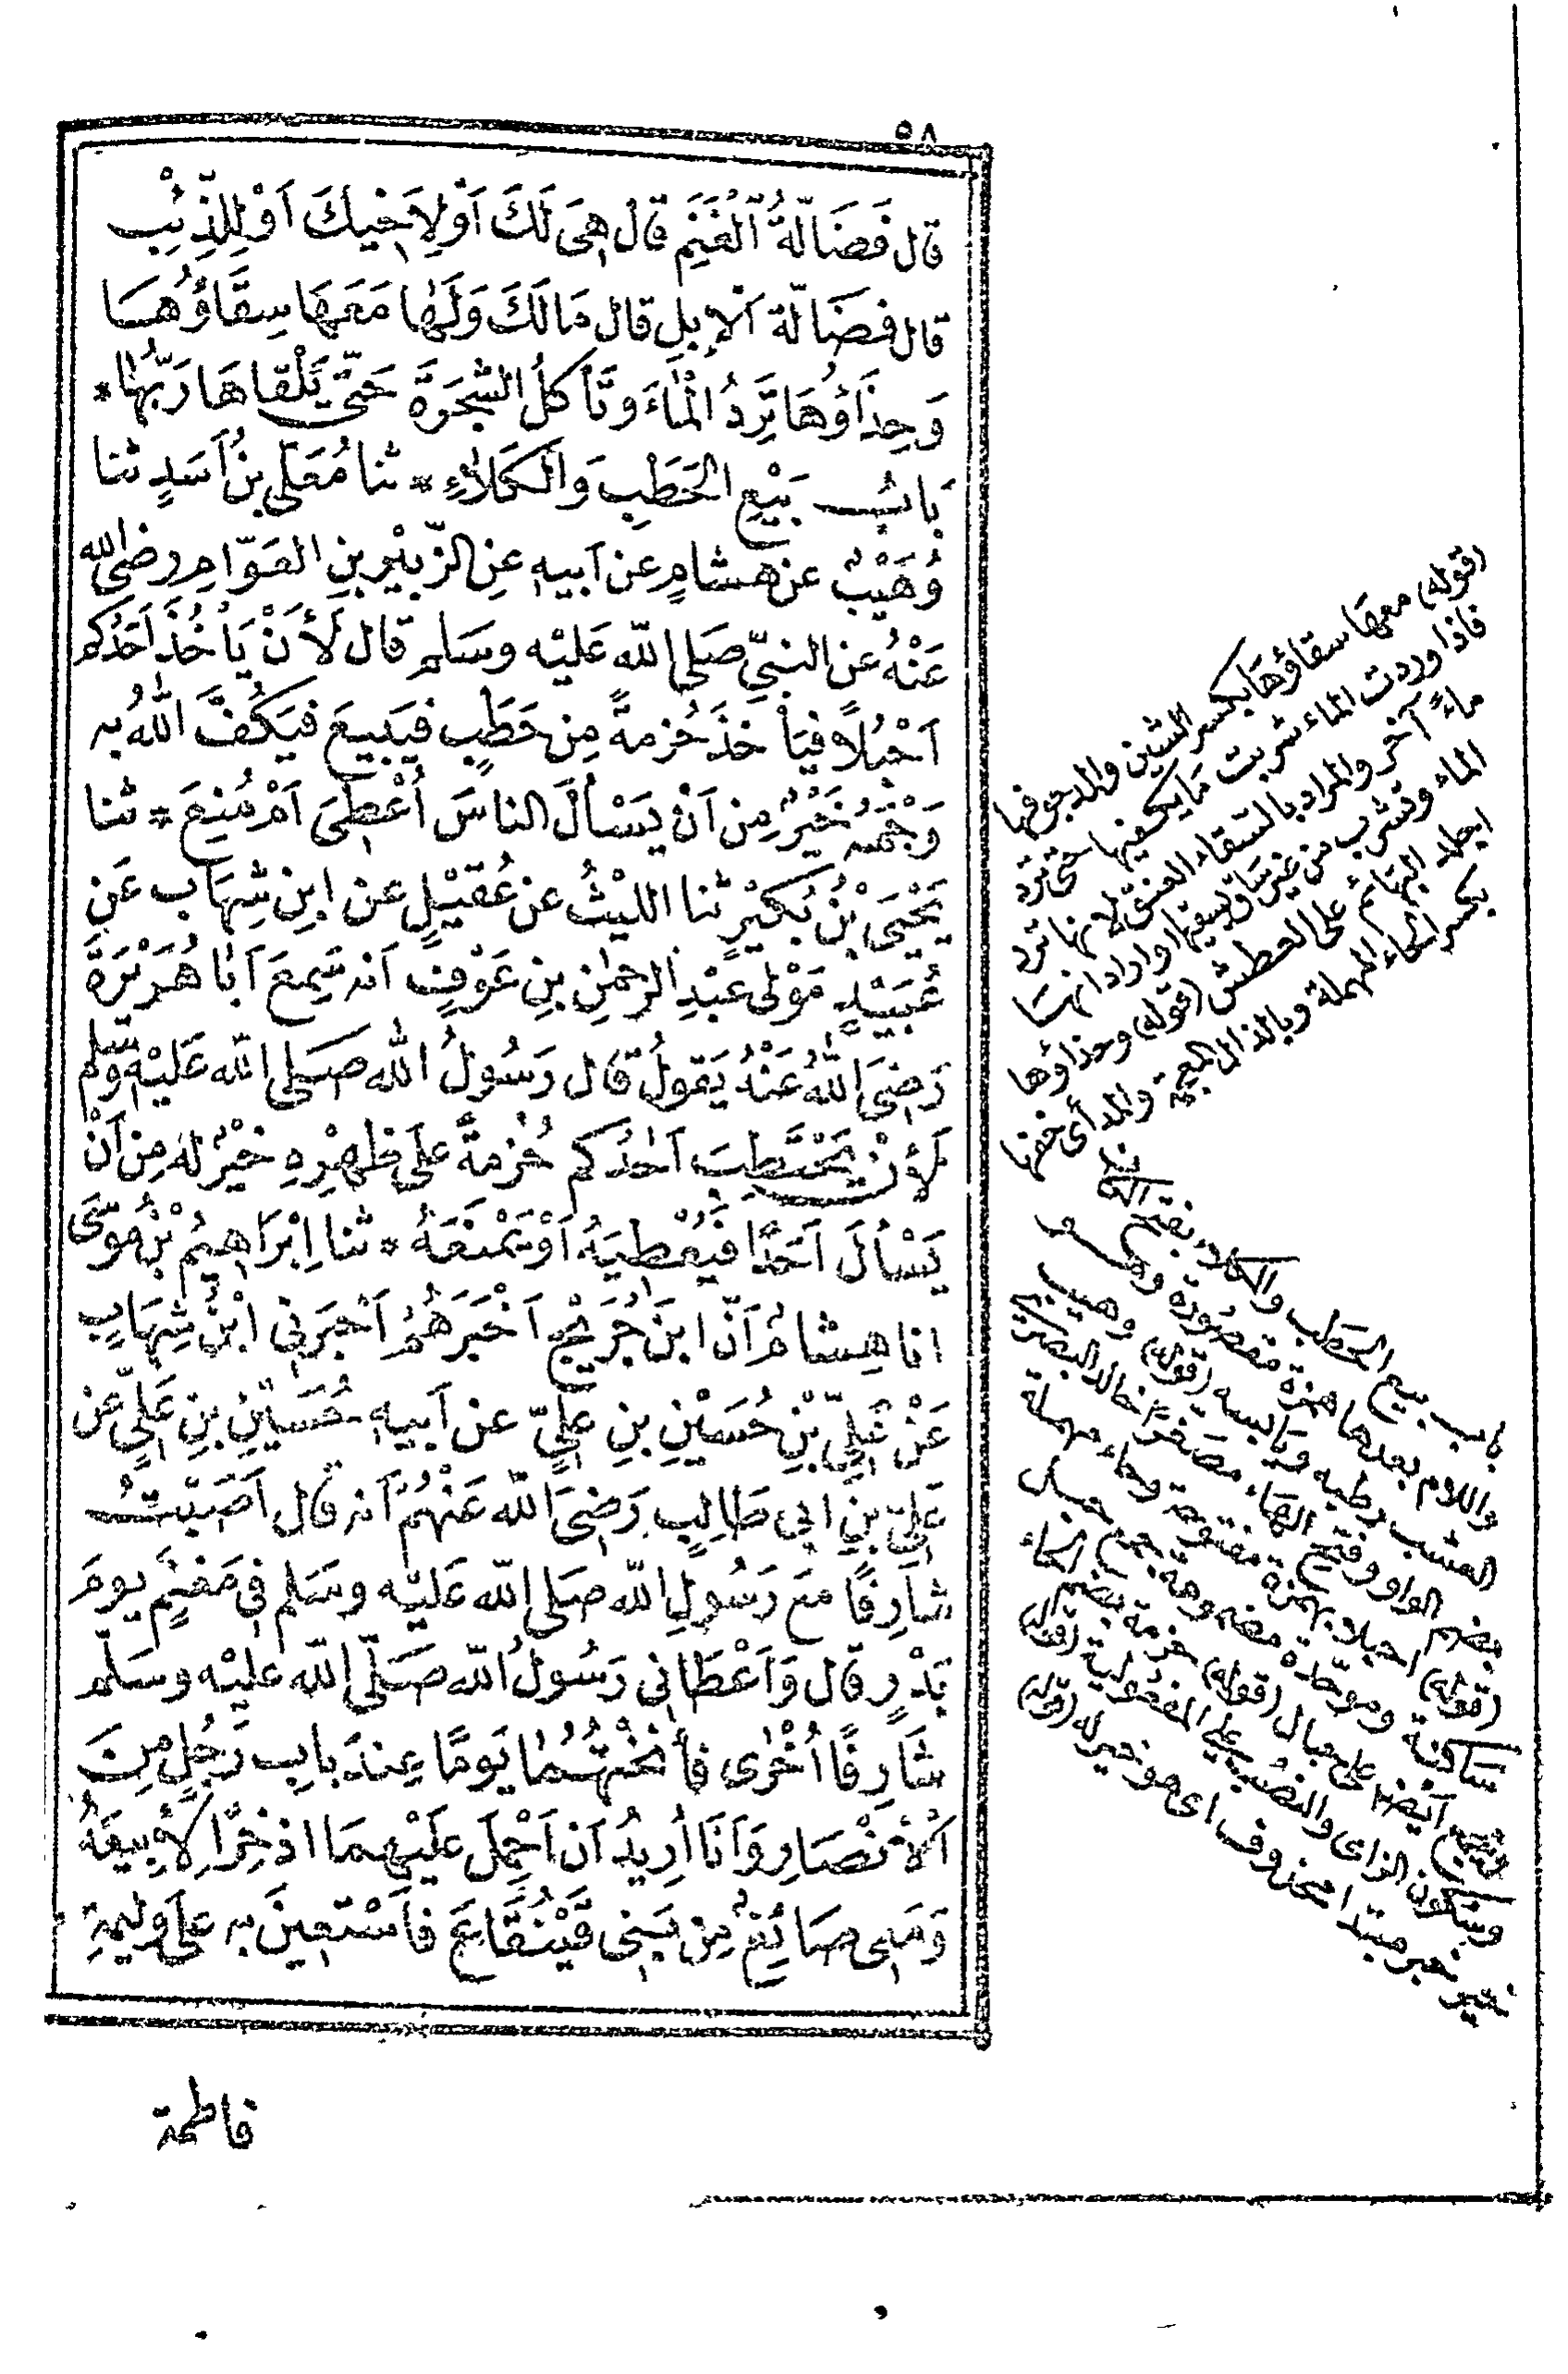 ٥٨
قال فَضَالَّةُ الْغَنَمِ قال هِىَ لَكَ اَوْ لِاَخِيكَ اَوْ لِلذِّئْبِ
قال فضَالَّة اْلاِبِلِ قال مَا لَكَ وَلَهٰا مَعَهَا سِقَاؤُهَا
وَحِذَاؤُهَا تَرِدُ الْمٰاءَ وَتَأكُلُ الشَّجَرَةَ حَتّى يَلْقاهَا رَبُّهٰا *
بَابُ بَيْعِ الحَطَبِ وَالْكَلاَءِ * ثنا مُعَلَى بنُ اَسَدٍ ثنا
وُهَيْبٌ عن هشامٍ عن اَبيهِ عنِ الزّبَيْرِ بنِ العَوّامِ رضِىَ الله
عَنْهُ عنِ النبىِّ صَلى الله عَليْه وسَلم قال لَأَنْ يَأْخُذَ اَحَدُكم
اَحْبُلاً فيَأْخذَ حُزمةً مِن حَطَبٍ فيَبيعَ فيَكُفَّ اللهُ به
وَجْهَهُ خَيْرٌ مِن اَنْ يَسْألَ الناسَ اُعْطِىَ اَمْ مُنِعَ * ثنا
يَحْيَى بْنُ بُكَيْرٍ ثنا الليْثُ عن عُقَيْلٍ عن ابنِ شِهَابٍ عَن
عُبَيْدٍ مَوْلى عَبْدِ الرحمٰنِ بنِ عَوْفٍ اَنه سَمِعَ اَبَا هُرَيْرَةَ
رَضِىَ اللهُ عَنْهُ يَقولُ قال رَسُولُ الله صَلى الله عَليْهِ وسَلم
لَأَنْ يَحْتَطِبَ اَحَدُكم حُزمةً على ظهْرِهِ خيْرٌ لهُ مِن اَنْ
يَسْألَ اَحَدًا فَيُعْطِيَهُ اَوْ يَمْنَعَهُ * ثنا اِبْرَاهِيمُ بْنُ مُوسَى
انا هِشامٌ اَنّ ابنَ جُرَيْجٍ اَخْبَرَهُمْ اَخْبَرَنِى ابْنُ شِهَابٍ
عَنْ عَلِىِّ بْنِ حُسَيْنِ بنِ عَلىٍّ عن اَبيهِ حُسَيْنِ بنِ عَلِىٍّ عن
عَلِىِّ بنِ ابى طَالِبٍ رَضِىَ الله عَنْهُمْ اَنه قال اَصَبْتُ
شارِفًا مَعَ رَسُولِ الله صَلى الله عَليْه وسَلم فى مَغنَمٍ يومَ
بَدْرٍ قال وَاَعْطَانِى رَسُولُ الله صَلّى الله عليْه وسَلّم
شَارِفًا اُخْرٰى فأَنَخْتُهُمٰا يَومًا عِندَ بابِ رَجُلٍ مِنَ
اْلأَنْصَارِ وَاَنَا اُرِيدُ اَن اَحْمِلَ عَلَيْهِمَا اذْخِرًا لِأَبِيعَهُ
وَمَعِى صَائِغٌ مِن بَنِى قَيْنُقَاعَ فاَسْتَعِينَ به على وَليمةِ
فاطمة
(قوله) معها سقاؤها بكسر السين والمد جوفها
فاذا وردت الماء شربت ما يكفيها حتى ترد
ماءً آخر والمراد بالسقاء العنق لانها ترد
الماء وتشرب من غير ساق يسقيها او اراد انها
اجلد البهائم على العطش (قوله) وحذاؤها
بكسر الحاء المهملة وبالذال المعجمة والمد أى خفها
باب بيع الحطب والكلاء بفتح الكاف
واللام بعدها همزة مقصورة وهو
العشب رطبه ويابسه (قوله) وهيب
بضم الواو وفتح الهاء مصغرًا ابن خالد البصرى
(قوله) احبلا بهمزة مفتوحة وحاء مهملة
ساكنة وموحّدة مضمومة جمع حبل
ويجمع أيضا على حبال (قوله) حزمة بضم الحاء
وسكون الزاى والنصب على المفعولية (قوله)
خير خبر مبتدا محذوف اى هو خير له (قوله)